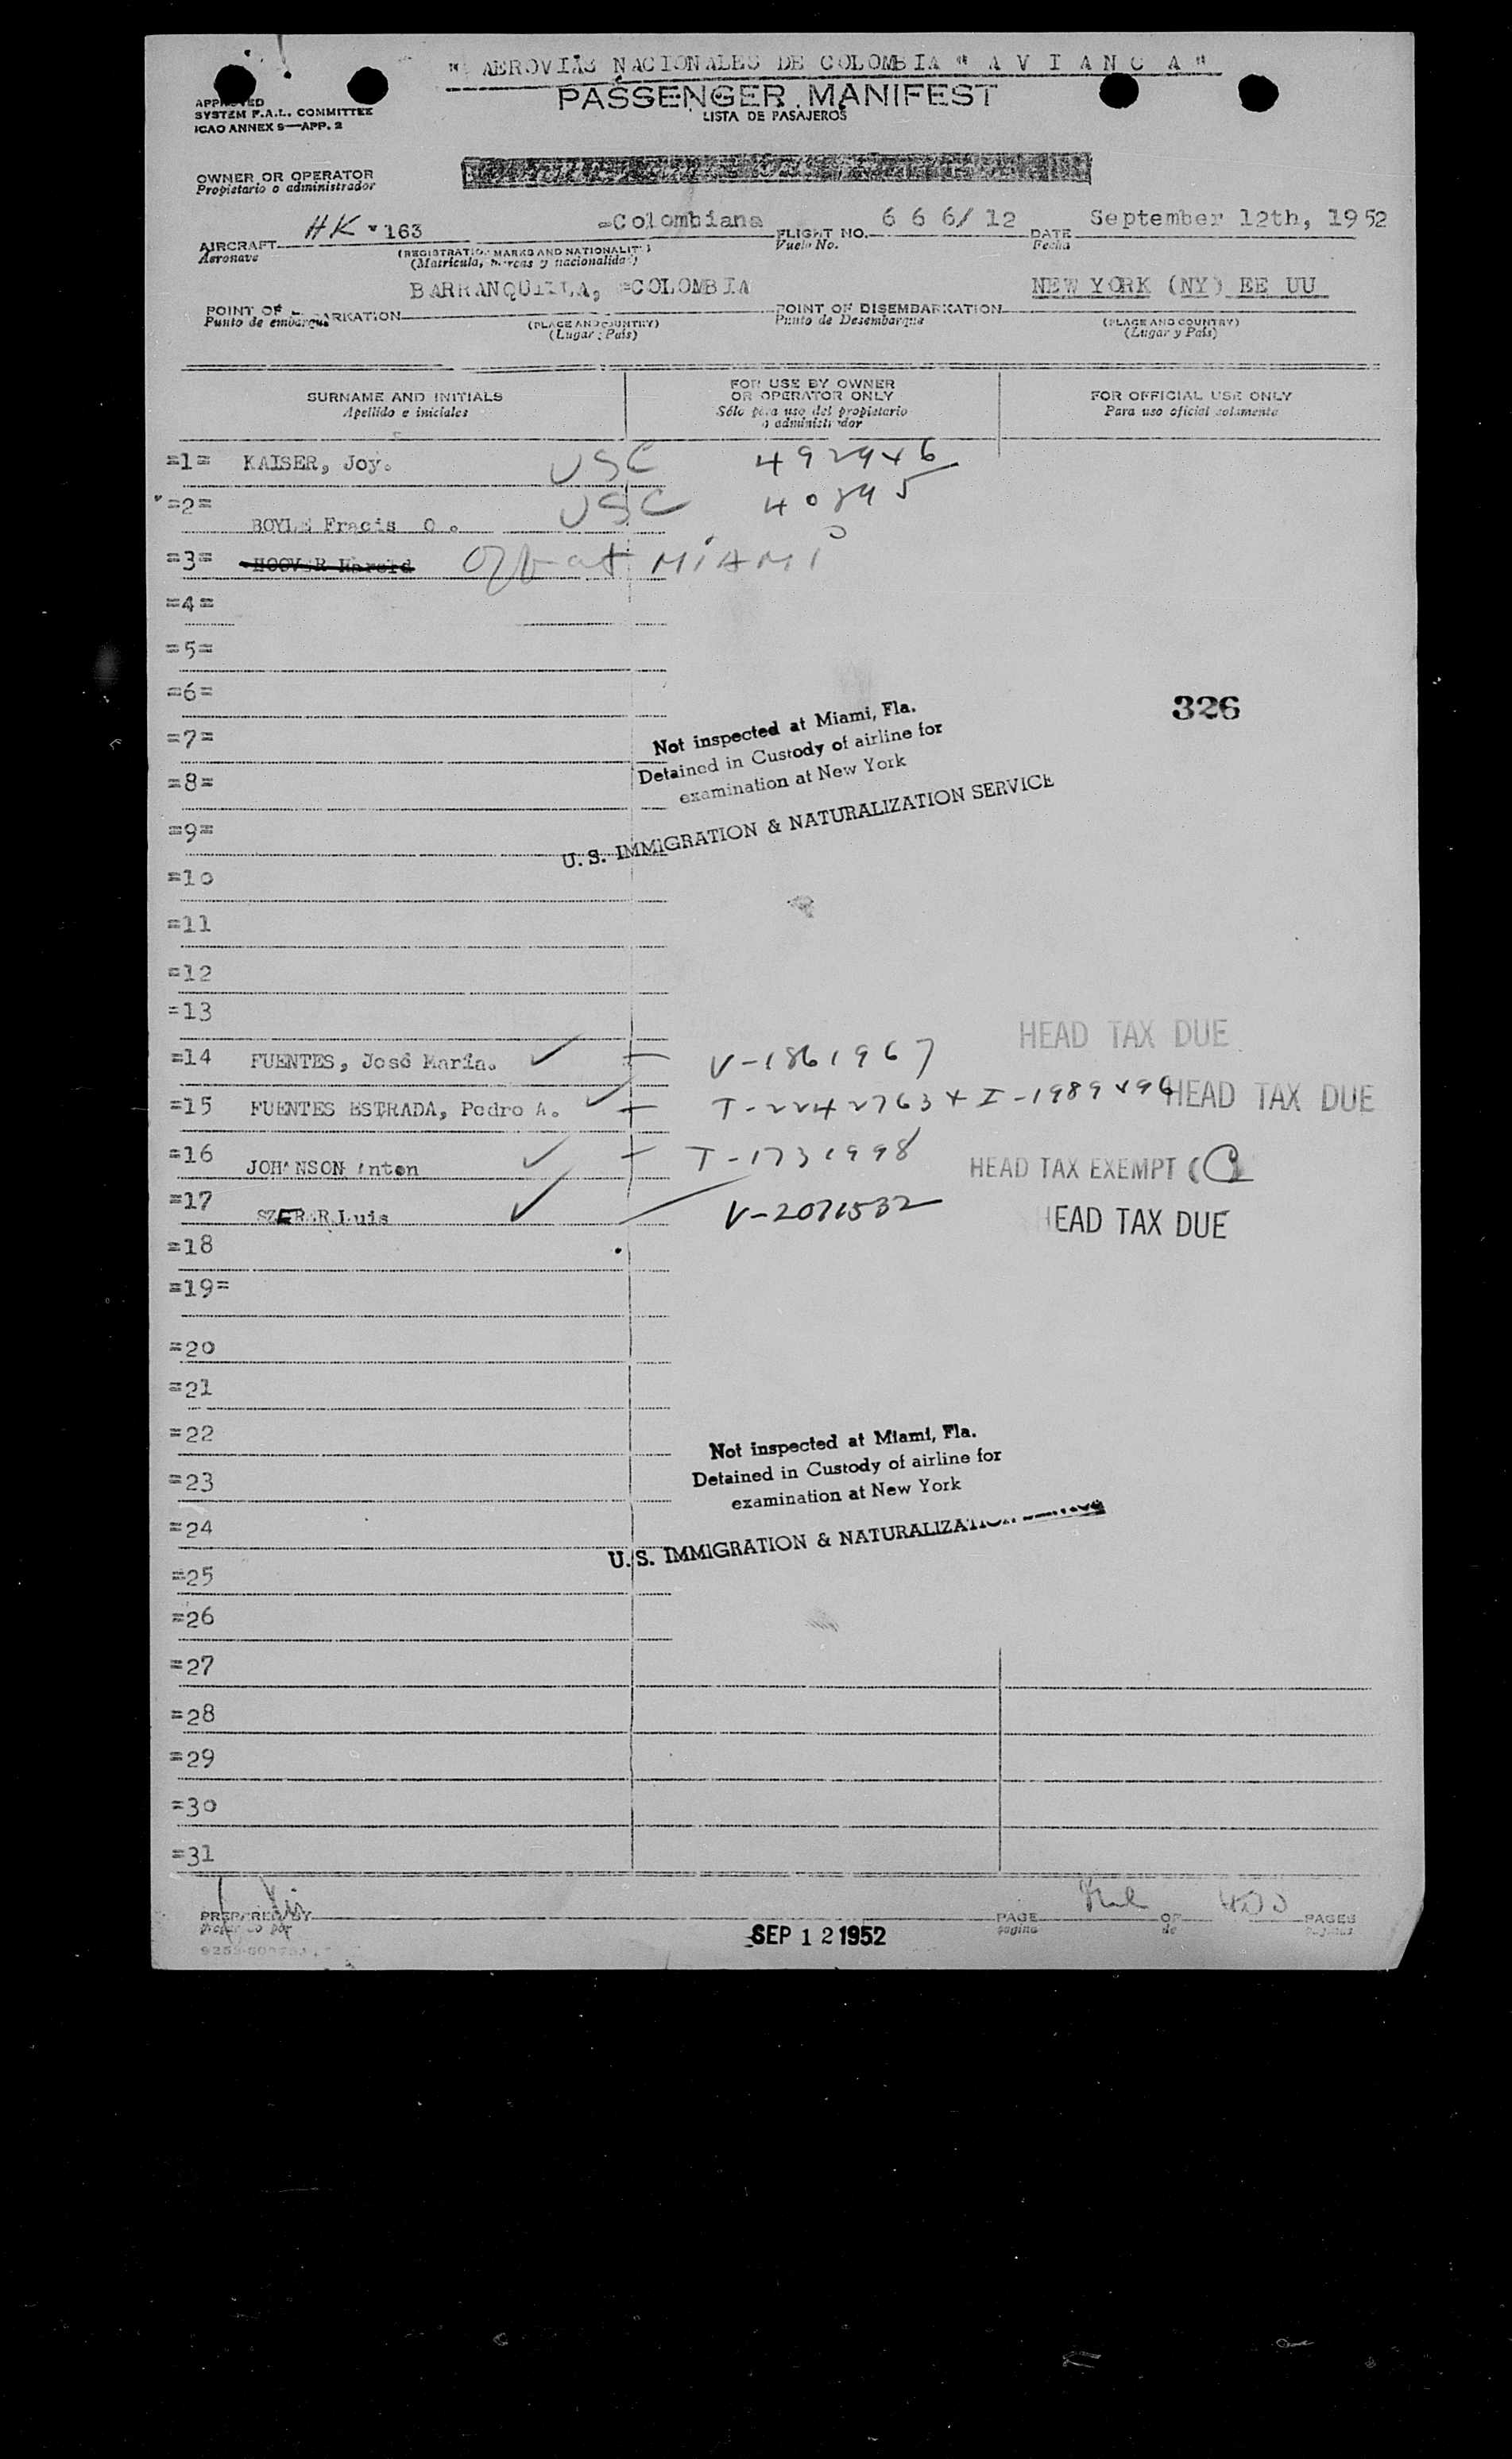 " AEROVIAS NACIONALES DE COLOMBIA " A V I A N C A "
PASSENGER MANIFEST
LISTA DE PASAJEROS
SYSTEM F.A.L. COMMITTEE
ICAO ANNEX 9—APP. 2
OWNER OR OPERATOR
Propietario o administrador
AIRCRAFT HK-163 =Colombiana FLIGHT NO. 6 6 6/ 12 DATE September 12th, 1952
Aeronave Vuelo No. Fecha
(REGISTRATION MARKS AND NATIONALITY)
(Matrícula, marcas y nacionalidad)
POINT OF EMBARKATION BARRANQUILLA, =COLOMBIA POINT OF DISEMBARKATION NEW YORK (NY) EE UU
Punto de embarque (PLACE AND COUNTRY) Punto de Desembarque (PLACE AND COUNTRY)
(Lugar y País) (Lugar y País)
SURNAME AND INITIALS FOR USE BY OWNER OR OPERATOR ONLY FOR OFFICIAL USE ONLY
Apellido e iniciales Sólo para uso del propietario o administrador Para uso oficial solamente
=1= KAISER, Joy. USC 492946
=2= BOYLE Fracis O. USC 40895
=3= HOOVER Harold Off at MIAMI
=4=
=5=
=6=
326
=7=
Not inspected at Miami, Fla.
Detained in Custody of airline for
examination at New York
U. S. IMMIGRATION & NATURALIZATION SERVICE
=8=
=9=
=10
=11
=12
=13
HEAD TAX DUE
=14 FUENTES, José María. V-1861967
=15 FUENTES ESTRADA, Pedro A. T-2242763 + I-1989496 HEAD TAX DUE
=16 JOHANSON Anton T-1731998 HEAD TAX EXEMPT (C)
=17 Luis V-2071532 HEAD TAX DUE
=18
=19=
=20
=21
=22
Not inspected at Miami, Fla.
Detained in Custody of airline for
examination at New York
U. S. IMMIGRATION & NATURALIZATION
=23
=24
=25
=26
=27
=28
=29
=30
=31
PREPARED BY PAGE OF PAGES
SEP 12 1952
página de